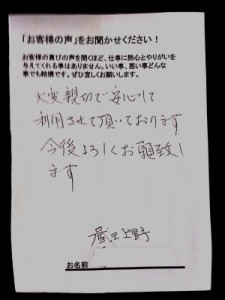 「お客様の声」をお聞かせください！
お客様の喜びの声を聞くほど、仕事に熱心とやりがいを
与えてくれる事はありません。いい事、悪い事どんな
事でも結構です。ぜひ宜しくお願いします。
大変親切で安心して
利用させて頂いております
今後よろしくお願致し
ます
お名前